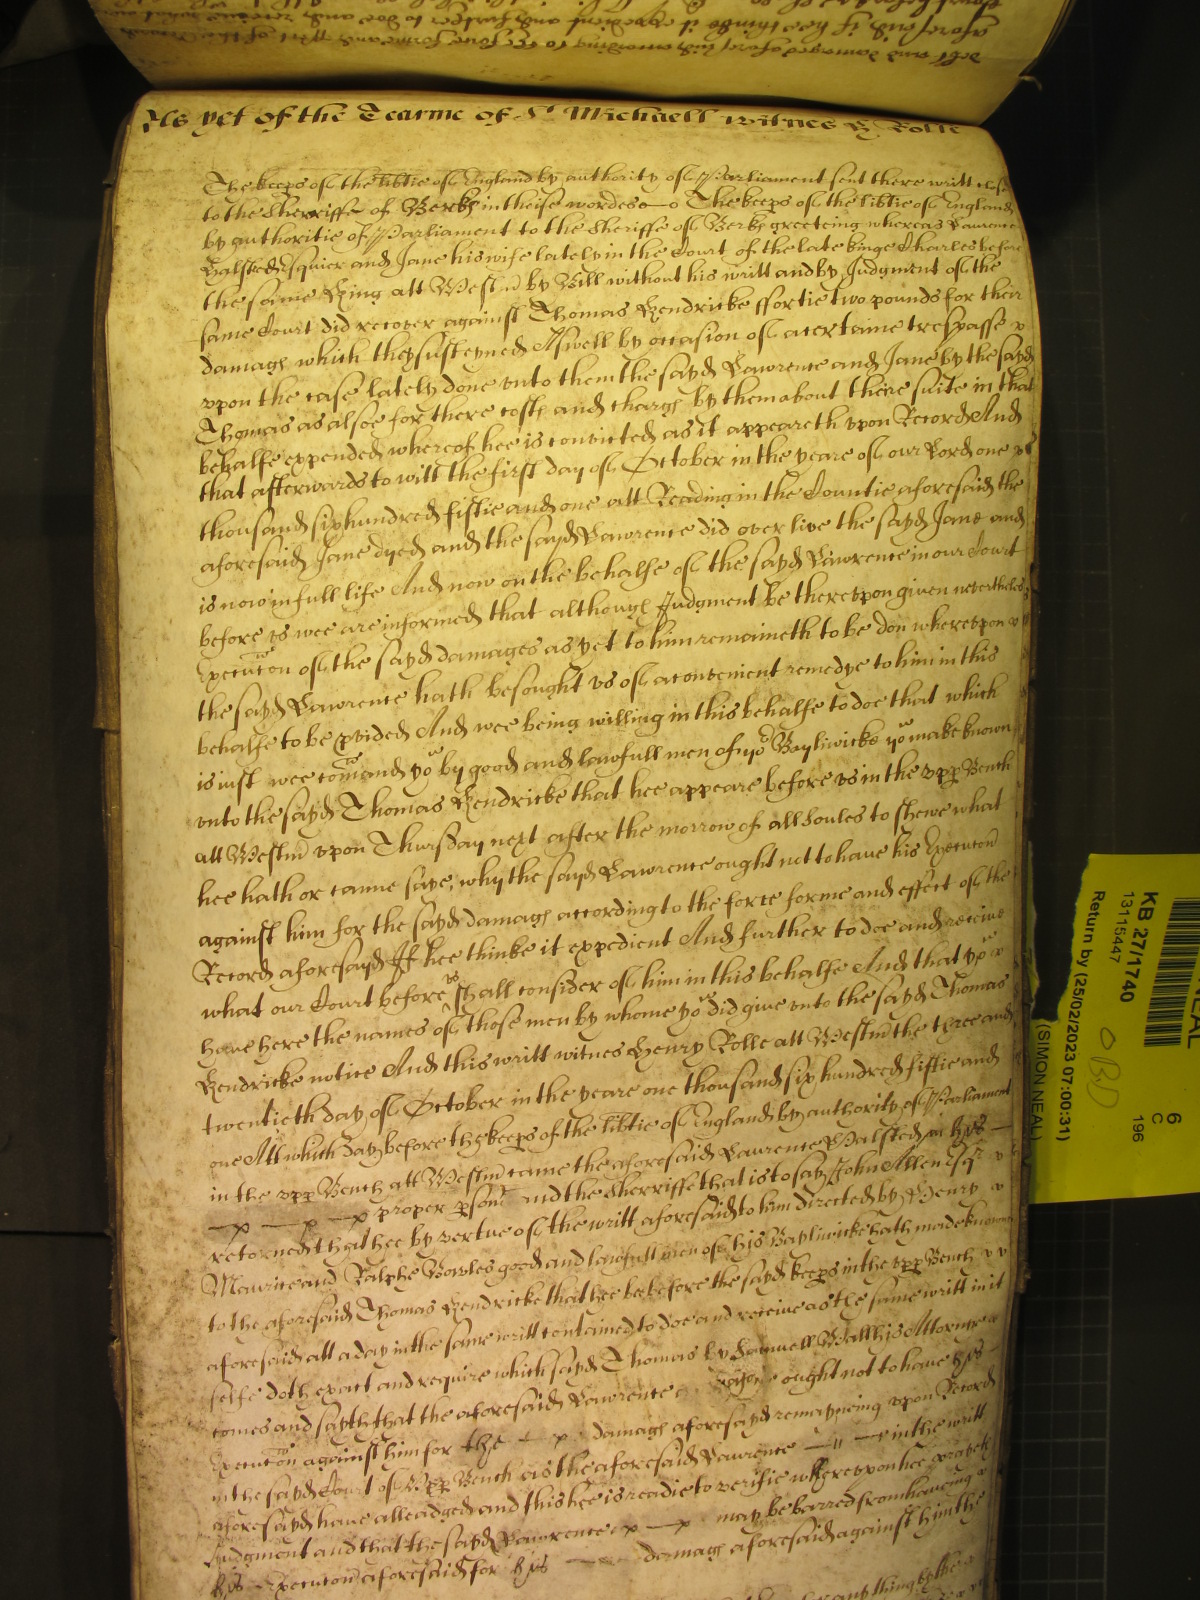 As yet of the Tearme of St Michaell witnes H Rolle
The keeps of the libtie of England by authority of Parliament sent there writt close
to the Sherriffe of Berks in theise wordes The keeps of the libtie of England
by authoritie of Parliament to the Sheriffe of Berks greeteing whereas Lawrence
Halsted Esquier and Jane his wife lately in the Court of the late kinge Charles before
the same King att Westm by Bill without his writt and by Judgment of the
same Court did recover against Thomas Kendricke ffortie two pounds for their
damags which they susteyned Aswell by occasion of a certaine trespasse
vpon the case lately done vnto them the sayd Lawrence and Jane by the sayd
Thomas as alsoe for there costs and chargs by them about there suite in that
behalfe expended whereof hee is convicted as it appeareth vpon Record And
that afterwards to witt the first day of October in the yeare of our Lord one
thousand six hundred fiftie and one att Reading in the Countie aforesaid the
aforesaid Jane dyed and the sayd Lawrence did over live the sayd Jane and
is now in full life And now on the behalfe of the sayd Lawrence in our Court
before vs wee are informed that although Judgment be therevpon given nevertheles
Execution of the sayd damages as yet to him remaineth to be don wherevpon
the sayd Lawrence hath besought vs of a convenient remedye to him in this
behalfe to be pvided And wee being willing in this behalfe to doe that which
is iust wee comand you by good and lawfull men of yor Bayliwicke you make known
vnto the sayd Thomas Kendricke that hee appeare before vs in the vpp Bench
att Westm vpon Thursday next after the morrow of all Soules to shewe what
hee hath or canne saye, why the sayd Lawrence ought not to have his Execution
against him for the sayd damags according to the force forme and effect of the
Record aforesayd If hee thinke it expedient And further to doe and receive
what our Court before vs shall consider of him in this behalfe And that you
have here the names of those men by whome you did give vnto the sayd Thomas
Kendricke notice And this writt witnes Henry Rolle att Westm the three and
twentieth day of October in the yeare one thousand six hundred fiftie and
one Att which day before the keeps of the libtie of England by authority of Parliament
in the vpp Bench att Westm came the aforesaid Lawrence Halsted in his
proper pson and the Sherriffe that is to say John Allen Esqr
retorned that hee by vertue of the writt aforesaid to him directed by Henry
Maurice and Ralphe Bowles good and lawfull men of his Bayliwicke hath made knowne
to the aforesaid Thomas Kendricke that hee bee before the sayd keeps in the vpp Bench
aforesaid att a day in the same writt contained to doe and receive as the same writt in it
selfe doth exact and require which sayd Thomas by Samuell Wall his Attorney
comes and sayth that the aforesaid Lawrence ought not to have his
Execution against him for the damags aforesayd remayneing vpon Record
in the sayd Court of Vpp Bench as the aforesaid Lawrence in the writt
aforesayd have alleadged and this hee is readie to verifie wherevpon hee prayeth
Judgment and that the sayd Lawrence may be barred from haveing
his Execution aforesaid for his damags aforesaid against him the
any thing by the
KB 27/1740
13115447
Return by (25/02/2023 07:00:31)
(SIMON NEAL)
6
C
196